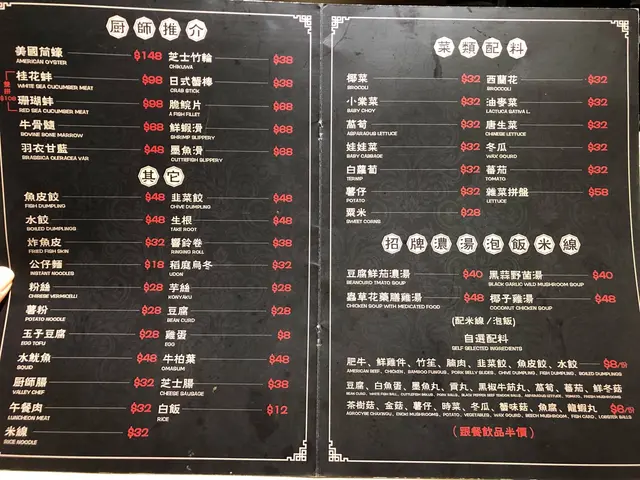 廚師推介
美國筒蠔 $148 芝士竹輪 $38
AMERICAN OYSTER CHIKUWA
桂花蚌 $98 日式蟹棒 $38
WHITE SEA CUCUMBER MEAT CRAB STICK
雙拼 $108
珊瑚蚌 $98 脆鯇片 $88
RED SEA CUCUMBER MEAT A FISH FILLET
牛骨髓 $88 鮮蝦滑 $88
BOVINE BONE MARROW SHRIMP SLIPPERY
羽衣甘藍 $48 墨魚滑 $88
BRASSICA OLERACEA VAR CUTTLEFISH SLIPPERY
其它
魚皮餃 $48 韭菜餃 $48
FISH DUMPLING CHIVE DUMPLING
水餃 $48 生根 $48
BOILED DUMPLINGS TAKE ROOT
炸魚皮 $32 響鈴卷 $38
FRIED FISH SKIN RINGING ROLL
公仔麵 $18 稻庭烏冬 $32
INSTANT NOODLES UDON
粉絲 $28 芋絲 $28
CHINESE VERMICELLI KONYAKU
薯粉 $28 豆腐 $28
POTATO NOODLE BEAN CURD
玉子豆腐 $28 雞蛋 $8
EGG TOFU EGG
水魷魚 $48 牛柏葉 $48
SQUID OMASUM
廚師腸 $32 芝士腸 $38
VALLEY CHEF CHEESE SAUSAGE
午餐肉 $32 白飯 $12
LUNCHEON MEAT RICE
米線 $32
RICE NOODLE
菜類配料
椰菜 $32 西蘭花 $32
BROCOLI BROCCOLI
小棠菜 $32 油麥菜 $32
BABY CHOY LACTUCA SATIVA L.
萵筍 $32 唐生菜 $32
ASPARAGUS LETTUCE CHINESE LETTUCE
娃娃菜 $32 冬瓜 $32
BABY CABBAGE WAX GOURD
白蘿蔔 $32 蕃茄 $32
TERNIP TOMATO
薯仔 $32 雜菜拼盤 $58
POTATO LETTUCE
粟米 $28
SWEET CORNS
招牌濃湯泡飯米線
豆腐鮮茄濃湯 $40 黑蒜野菌湯 $40
BEANCURD TMATO SOUP BLACK GARLIC WILD MUSHROOM SOUP
蟲草花藥膳雞湯 $48 椰子雞湯 $48
CHICKEN SOUP WITH MEDICATED FOOD COCONUT CHICKEN SOUP
(配米線/泡飯)
自選配料
SELF SELECTED INGREDIENTS
肥牛、鮮雞件、竹笙、腩肉、韭菜餃、魚皮餃、水餃 $8/份
AMERICAN BEEF、CHICKEN、BAMBOO FUNGUS、PORK BELLY SLIDES、CHIVE DUMPLING、FISH DUMPLING、BOILED DUMPLINGS
豆腐、白魚蛋、墨魚丸、貢丸、黑椒牛筋丸、萵筍、蕃茄、鮮冬菇
BEAN CURD、WHITE FISH BALL、CUTTLEFISH BALLS、PORK BALLS、BLACK PEPPER BEEF TENDON BALLS、ASPARAGUS LETTUCE、TOMATO、FRESH MUSHROOM
茶樹菇、金菇、薯仔、時菜、冬瓜、蟹味菇、魚腐、龍蝦丸 $6/份
AGROCYBE CHAXINGU、ENOKI MUSHROOMS、POTATO、VEGETABLES、WAX GOURD、BEECH MUSHROOM、FISH CARD、LOBSTER BALLS
(跟餐飲品半價)